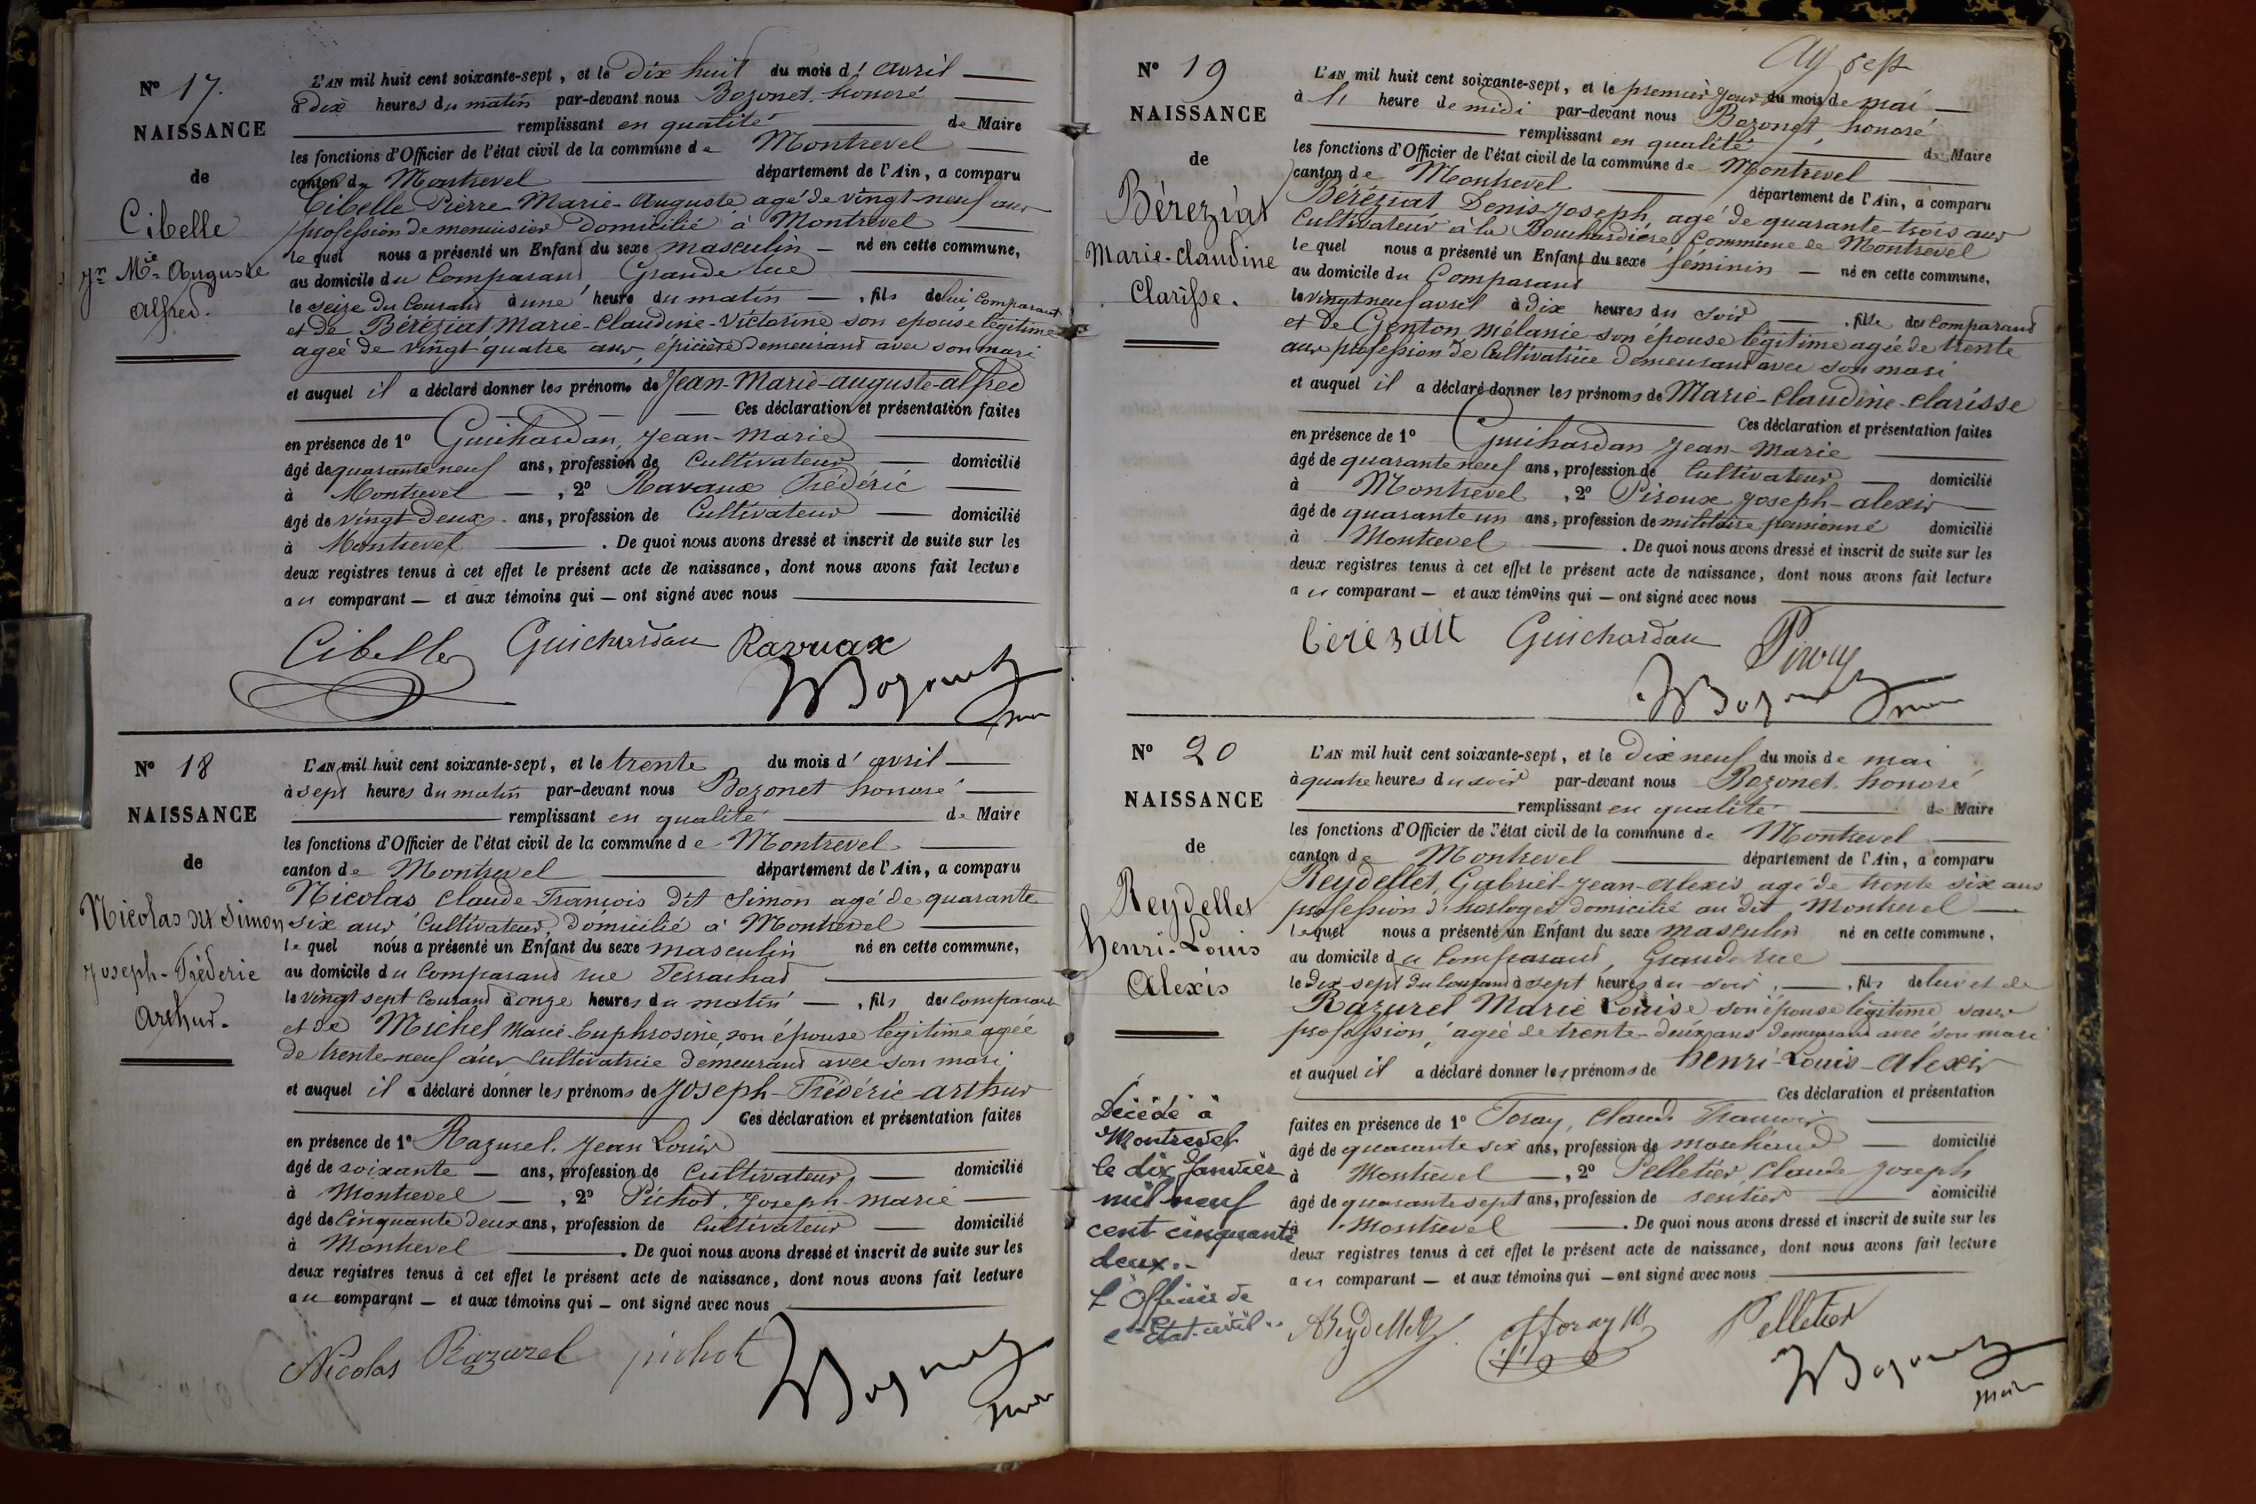 N° 17.
NAISSANCE
de
Cibelle
Jn Mie Auguste
alfred.
L'AN mil huit cent soixante-sept, et le dix huit du mois d'avril
à dix heures du matin par-devant nous Bozonet honoré
remplissant en qualité de Maire
les fonctions d'Officier de l'état civil de la commune de Montrevel
canton de Montrevel département de l'Ain, a comparu
Cibelle Pierre-Marie-Auguste agé de vingt-neuf ans
profession de menuisier Domicilié à Montrevel
lequel nous a présenté un Enfant du sexe masculin né en cette commune,
au domicile du Comparant Grande rue
le seize du Courant à une heure du matin, fils de lui Comparant
et de Béréziat Marie-Claudine-Victorine son epouse légitime
agée de vingt quatre ans, épicière demeurant avec son mari
et auquel il a déclaré donner les prénoms de Jean-Marie-auguste-alfred
Ces déclaration et présentation faites
en présence de 1° Guichardan, Jean-Marie
âgé de quarante neuf ans, profession de Cultivateur domicilié
à Montrevel, 2° Ravaux Frédéric
âgé de vingt-deux ans, profession de Cultivateur domicilié
à Montrevel. De quoi nous avons dressé et inscrit de suite sur les
deux registres tenus à cet effet le présent acte de naissance, dont nous avons fait lecture
au comparant — et aux témoins qui — ont signé avec nous
Cibelle Guichardan Ravuax
Bozonet
maire
N° 18
NAISSANCE
de
Nicolas dit Simon
Joseph-Fréderic
Arthur.
L'AN mil huit cent soixante-sept, et le trente du mois d'avril
à sept heures du matin par-devant nous Bozonet honoré
remplissant en qualité de Maire
les fonctions d'Officier de l'état civil de la commune de Montrevel
canton de Montrevel département de l'Ain, a comparu
Nicolas Claude François dit Simon agé de quarante
six ans Cultivateur, Domicilié à Montrevel
lequel nous a présenté un Enfant du sexe masculin né en cette commune,
au domicile du Comparant rue
le vingt sept Courant à onze heures du matin, fils du Comparant
et de Michel Marie-Euphrosine, son épouse légitime agée
de trente-neuf ans Cultivatrice demeurant avec son mari
et auquel il a déclaré donner les prénoms de Joseph-Frédéric-arthur
Ces déclaration et présentation faites
en présence de 1° Razurel, Jean Louis
âgé de soixante ans, profession de Cultivateur domicilié
à Montrevel, 2° Pichot, Joseph-Marie
âgé de Cinquante deux ans, profession de Cultivateur domicilié
à Montrevel. De quoi nous avons dressé et inscrit de suite sur les
deux registres tenus à cet effet le présent acte de naissance, dont nous avons fait lecture
au comparant — et aux témoins qui — ont signé avec nous
Nicolas Razurel pichot
Bozonet
maire
N° 19
NAISSANCE
de
Béréziat
Marie-Claudine
Clarisse.
L'AN mil huit cent soixante-sept, et le premier jour du mois de mai
à heure de midi par-devant nous Bozonet honoré
remplissant en qualité de Maire
les fonctions d'Officier de l'état civil de la commune de Montrevel
canton de Montrevel département de l'Ain, a comparu
Béréziat Denis-Joseph, agé de quarante-trois ans
Cultivateur à la Bouchardière, Commune de Montrevel
lequel nous a présenté un Enfant du sexe féminin né en cette commune,
au domicile du Comparant
le vingt neuf avril à dix heures du soir, fille du Comparant
et de Genton Mélanie son épouse légitime agée de trente
ans profession de Cultivatrice demeurant avec son mari
et auquel il a déclaré donner les prénoms de Marie-Claudine-Clarisse
Ces déclaration et présentation faites
en présence de 1° Guichardan Jean-Marie
âgé de quarante neuf ans, profession de Cultivateur domicilié
à Montrevel, 2° Piroux Joseph-alexis
âgé de quarante un ans, profession de militaire pensionné domicilié
à Montrevel. De quoi nous avons dressé et inscrit de suite sur les
deux registres tenus à cet effet le présent acte de naissance, dont nous avons fait lecture
au comparant — et aux témoins qui — ont signé avec nous
Guichardan
Bozonet
maire
N° 20
NAISSANCE
de
Reydellet
henri-Louis
Alexis
Décédé à
Montrevel
le dix Janvier
mil neuf
cent cinquante
deux.-
L'Officier de
l'Etat-civil
L'AN mil huit cent soixante-sept, et le dix neuf du mois de mai
à quatre heures du soir par-devant nous Bozonet honoré
remplissant en qualité de Maire
les fonctions d'Officier de l'état civil de la commune de Montrevel
canton de Montrevel département de l'Ain, a comparu
Reydellet, Gabriel-Jean-Alexis agé de trente six ans
profession d'horloger domicilié au dit Montrevel
lequel nous a présenté un Enfant du sexe masculin né en cette commune,
au domicile du Comparant, Grande rue
le dix-sept du Courant à sept heures du soir, fils de lui et de
Razurel Marie Louise son épouse légitime sans
profession, agée de trente-deux ans demeurant avec son mari
et auquel il a déclaré donner les prénoms de henri-Louis-Alexis
Ces déclaration et présentation
faites en présence de 1° Foray, Claude François
âgé de quarante six ans, profession de marchand domicilié
à Montrevel, 2° Pelletier, Claude-Joseph
âgé de quarante sept ans, profession de rentier domicilié
à Montrevel. De quoi nous avons dressé et inscrit de suite sur les
deux registres tenus à cet effet le présent acte de naissance, dont nous avons fait lecture
au comparant — et aux témoins qui — ont signé avec nous
AReydellet Foray Pelletier
Bozonet
maire